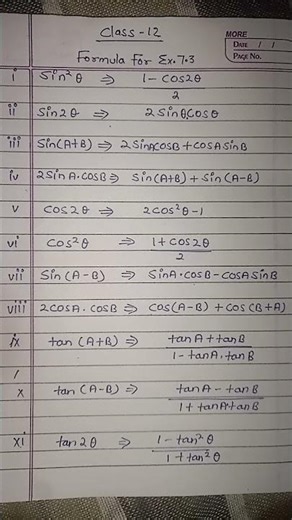 Class-12
MORE
DATE / /
PAGE NO.
Formula for Ex.7.3
i Sin²θ ⇒ 1-COS2θ / 2
ii Sin2θ ⇒ 2Sinθ.cosθ
iii Sin(A+B) ⇒ 2SinACOSB+COSASinB
iv 2SinA.COSB ⇒ Sin(A+B)+Sin(A-B)
v COS2θ ⇒ 2COS²θ-1
vi COS²θ ⇒ 1+COS2θ / 2
vii Sin(A-B) ⇒ SinA.COSB-COSASinB
viii 2COSA.COSB ⇒ COS(A-B)+COS(B+A)
ix tan(A+B) ⇒ tanA+tanB / 1-tanA.tanB
x tan(A-B) ⇒ tanA-tanB / 1+tanA.tanB
xi tan2θ ⇒ 1-tan²θ / 1+tan²θ